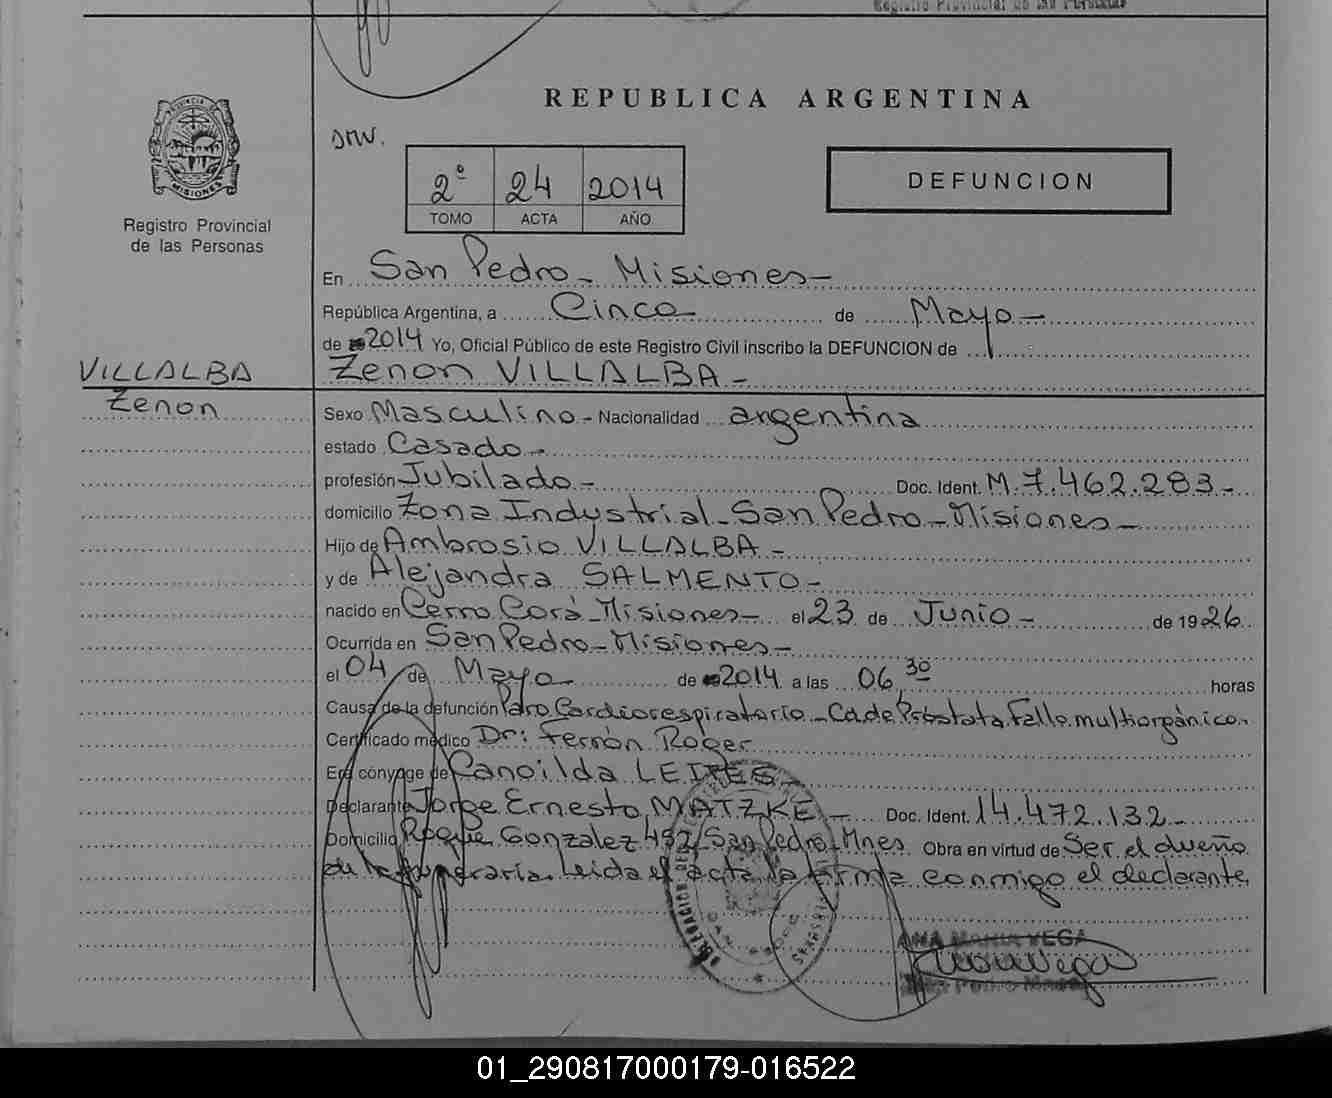 Registro Provincial de las Personas
REPUBLICA ARGENTINA
PROVINCIA DE
MISIONES
Registro Provincial
de las Personas
2º 24 2014
TOMO ACTA AÑO
DEFUNCION
En San Pedro - Misiones -
República Argentina, a Cinco de Mayo -
de 2014 Yo, Oficial Público de este Registro Civil inscribo la DEFUNCION de
VILLALBA
Zenon
Zenon VILLALBA -
Sexo Masculino - Nacionalidad argentina
estado Casado -
profesión Jubilado - Doc. Ident. M.7.462.283 -
domicilio Zona Industrial - San Pedro - Misiones -
Hijo de Ambrosio VILLALBA -
y de Alejandra SALMENTO -
nacido en Cerro Corá - Misiones - el 23 de Junio - de 1926
Ocurrida en San Pedro - Misiones -
el 04 de Mayo de 2014 a las 06,30 horas
Causa de la defunción Paro Cardiorespiratorio - Ca de Próstata, Fallo multiorgánico.
Certificado médico Dr: Fernán Roger
Era cónyuge de Canoilda LEITES -
Declarante Jorge Ernesto MATZKE - Doc. Ident. 14.472.132 -
Domicilio Roque Gonzalez 492 San Pedro - Mnes Obra en virtud de Ser el dueño
de la funeraria. Leida el acta la firma conmigo el declarante
ANA MARIA VEGA
01_290817000179-016522